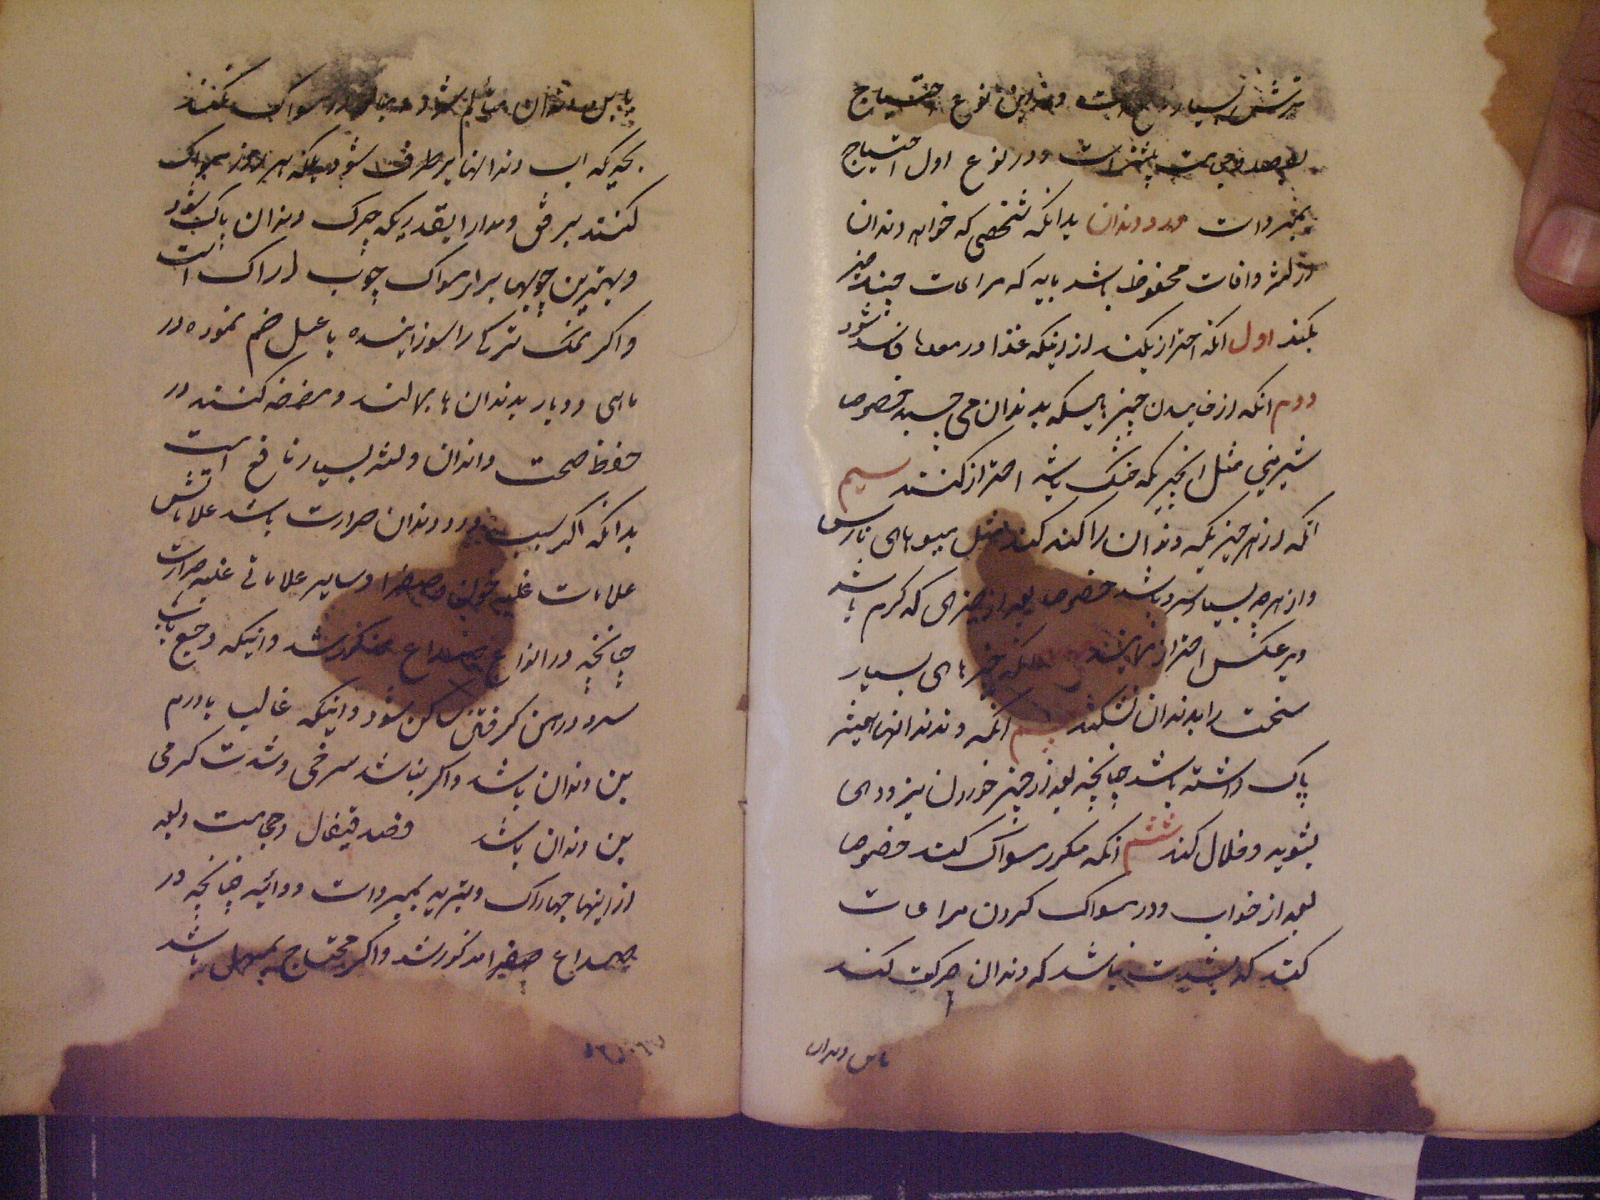 بسیار است و در این نوع احتیاج
بفصد و حجامت بیشتر است و در نوع اول احتیاج
بمبردات درد دندان بدانکه شخصی که خواهد دندان
از لثه و افات محفوظ باشد باید که مراعات چند چیز
بکند اول انکه احتراز بکند از اینکه غذا در معدها فاسد شود
دوم انکه از خاییدن چیزهایکه بدندان می چسبد خصوصا
شیرینی مثل انجیریکه خشک باشد احتراز کنند سیم
انکه از هر چیزیکه دندان را کند کند مثل میوهای نارس
و از هرچه بسیار سرد باشد خصوصا بعد از چیزی که گرم باشد
و برعکس احتراز نمایند انکه چیزهای بسیار
سخت را بدندان نشکند پنجم انکه دندانها همیشه
پاک داشته باشد چنانچه بعد از چیز خوردن بزودی
بشوید و خلال کند ششم انکه مکرر مسواک کند خصوصا
بعد از خواب و در مسواک کردن مراعات
کند که بشدت نباشد که دندان حرکت کند
دندان
دندان شود و مسواک نکنند
بحیثیکه اب دندانها برطرف شود بلکه مسواک
کنند برفق و مدارا بقدریکه چرک دندان پاک شود
و بهترین چوبها برای مسواک چوب اراک است
و اگر نمک ترکی را سوزاینده با عسل ضم نموده در
ماهی دوبار بدندان ها بمالند و مضمضه کنند در
حفظ صحت دندان و لثه بسیار نافع است
بدانکه اگر سبب درد دندان حرارت باشد علاماتش
علامات غلبه خون و صفرا و سایر علاماتی غلبه حرارت
چنانچه در انواع صداع مذکور شد و اینکه وجع باب
سرد در دهن گرفتن ساکن شود و اینکه غالب با ورم
بن دندان باشد و اگر نباشد سرخی و شدت گرمی
بن دندان باشد فصد قیفال و حجامت و بعد
از اینها چهاررک و تبرید بمبردات دوائیه چنانچه در
صداع صفرا مذکور شد و اگر محتاج بمسهل باشد